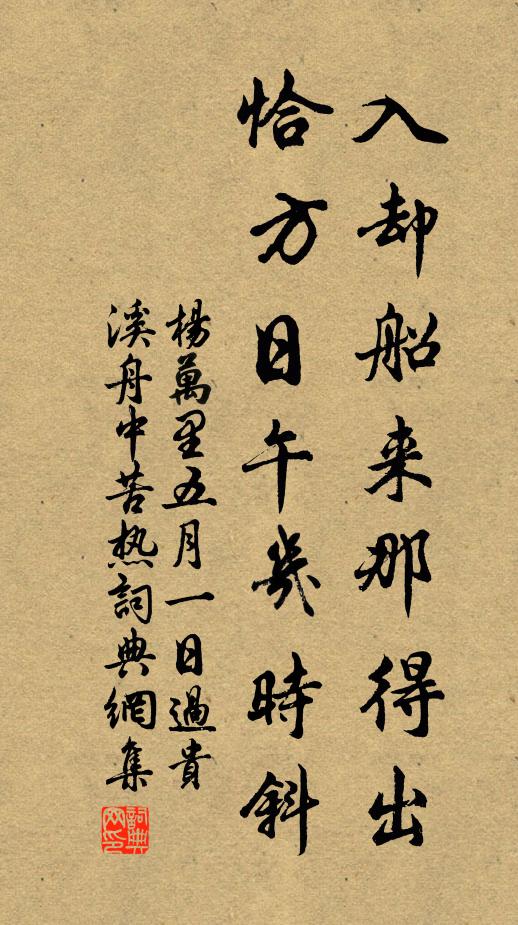 入却船来那得出
恰方日午幾時斜
楊萬里五月一日過貴
溪舟中苦热詞典網集
詞典网印